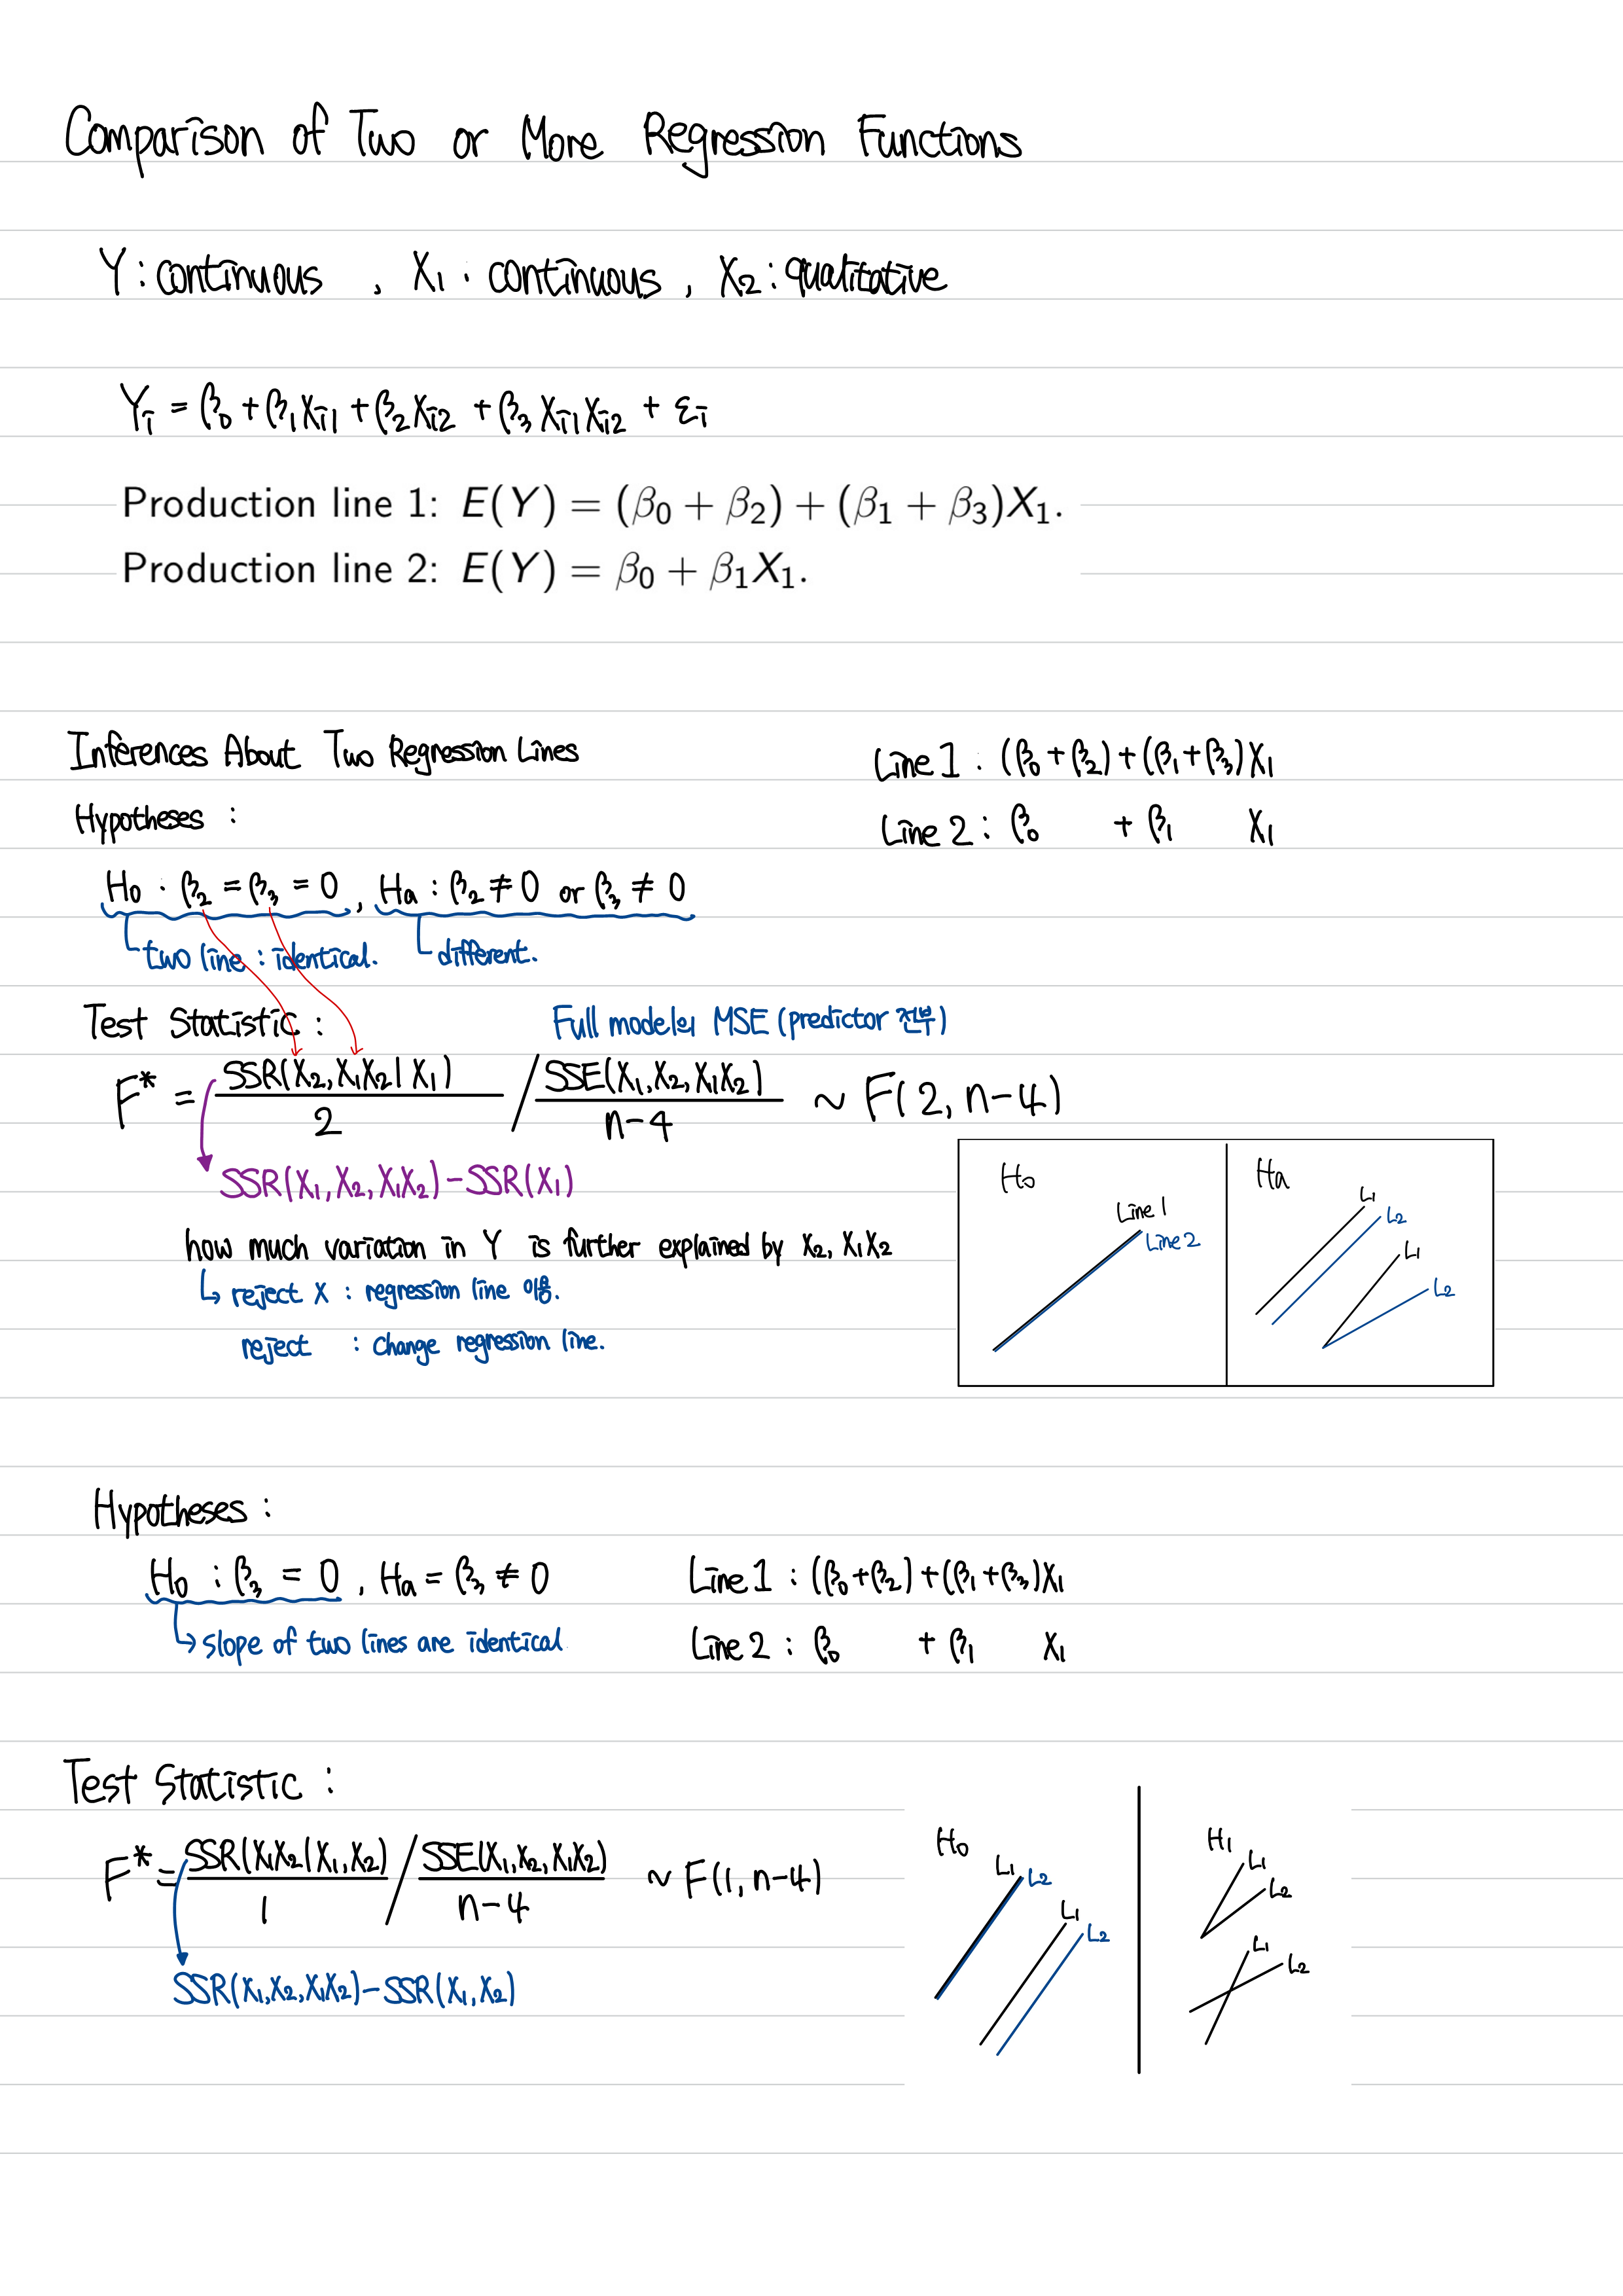 Comparison of Two or More Regression Functions
Y : continuous , X₁ : continuous , X₂ : qualitative
Yᵢ = β₀ + β₁Xᵢ₁ + β₂Xᵢ₂ + β₃Xᵢ₁Xᵢ₂ + εᵢ
Production line 1: E(Y) = (β₀ + β₂) + (β₁ + β₃)X₁.
Production line 2: E(Y) = β₀ + β₁X₁.
Inferences About Two Regression Lines
Line 1 : (β₀ + β₂) + (β₁ + β₃)X₁
Hypotheses :
Line 2 : β₀ + β₁ X₁
H₀ : β₂ = β₃ = 0 , Ha : β₂ ≠ 0 or β₃ ≠ 0
two line : identical.
different.
Test Statistic :
Full model의 MSE (predictor 전부)
F* = SSR(X₂, X₁X₂ | X₁) / 2 / SSE(X₁, X₂, X₁X₂) / n-4 ~ F(2, n-4)
SSR(X₁, X₂, X₁X₂) - SSR(X₁)
how much variation in Y is further explained by X₂, X₁X₂
reject X : regression line 이용.
reject : change regression line.
H₀
Line 1
Line 2
Ha
L₁
L₂
L₁
L₂
Hypotheses :
H₀ : β₃ = 0 , Ha = β₃ ≠ 0
Line 1 : (β₀+β₂)+(β₁+β₃)X₁
slope of two lines are identical
Line 2 : β₀ + β₁ X₁
Test Statistic :
F* = SSR(X₁X₂ | X₁, X₂) / 1 / SSE(X₁, X₂, X₁X₂) / n-4 ~ F(1, n-4)
SSR(X₁, X₂, X₁X₂) - SSR(X₁, X₂)
H₀
L₁
L₂
L₁
L₂
H₁
L₁
L₂
L₁
L₂